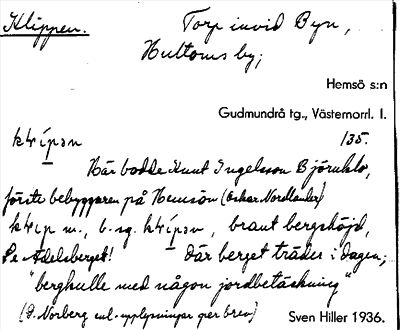 Klippen. Torp invid Byn,
Hultoms by;
Hemsö s:n
Gudmundrå tg., Västernorrl. l.
135.
Här bodde Knut Ingelsson Björnklo,
förste bebyggaren på Hemsön (Oskar Nordlander)
m., b. sg. brant bergshöjd,
Se Adelsberget! där berget träder i dagen;
"bergkulle med någon jordbetäckning"
(D. Norberg enl. upplysningar per brev) Sven Hiller 1936.